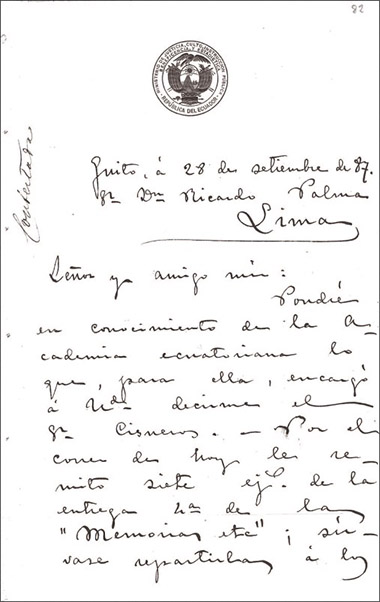 82
MINISTERIO DE JUSTICIA, CULTO, INSTRUCCION PUBLICA
BENEFICENCIA Y ESTADISTICA
REPÚBLICA DEL ECUADOR
Contestada
Quito, á 28 de setiembre de 87.
Sr Dn Ricardo Palma
Lima
Señor y amigo mio:
Pondré
en conocimiento de la A-
cademia ecuatoriana lo
que, para ella, encargó
á Ud. decirme el
Sr Cisneros. — Por el
correo de hoy le re-
mito siete ejs. de la
entrega 4a de las
"Memorias etc"; sír-
vase repartirlas á los